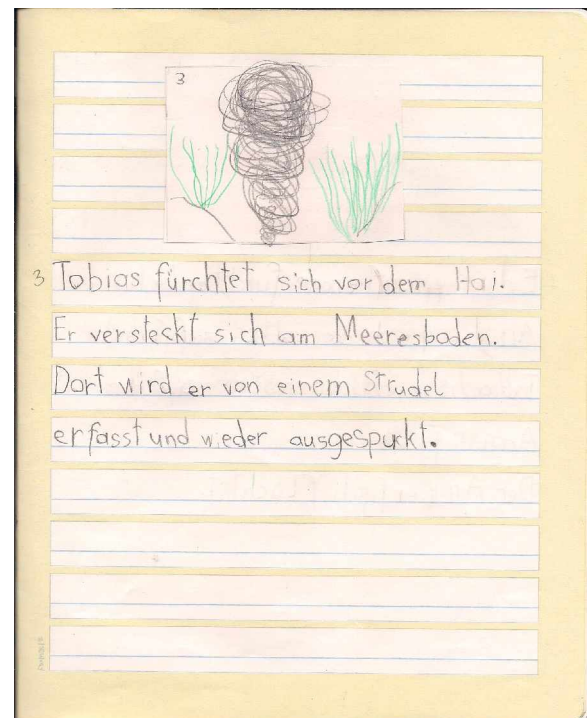 3
3 Tobias fürchtet sich vor dem Hai.
Er versteckt sich am Meeresboden.
Dort wird er von einem Strudel
erfasst und wieder ausgespukt.